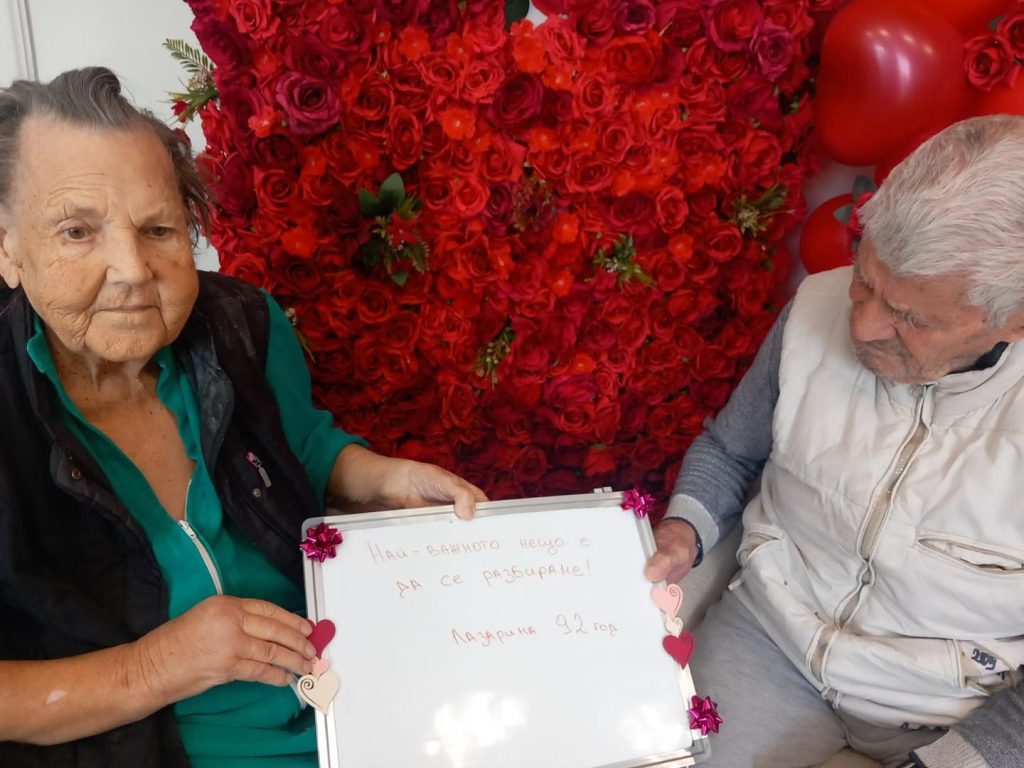 Най-важното нещо е
да се разбираме!
Лазарина 92 год